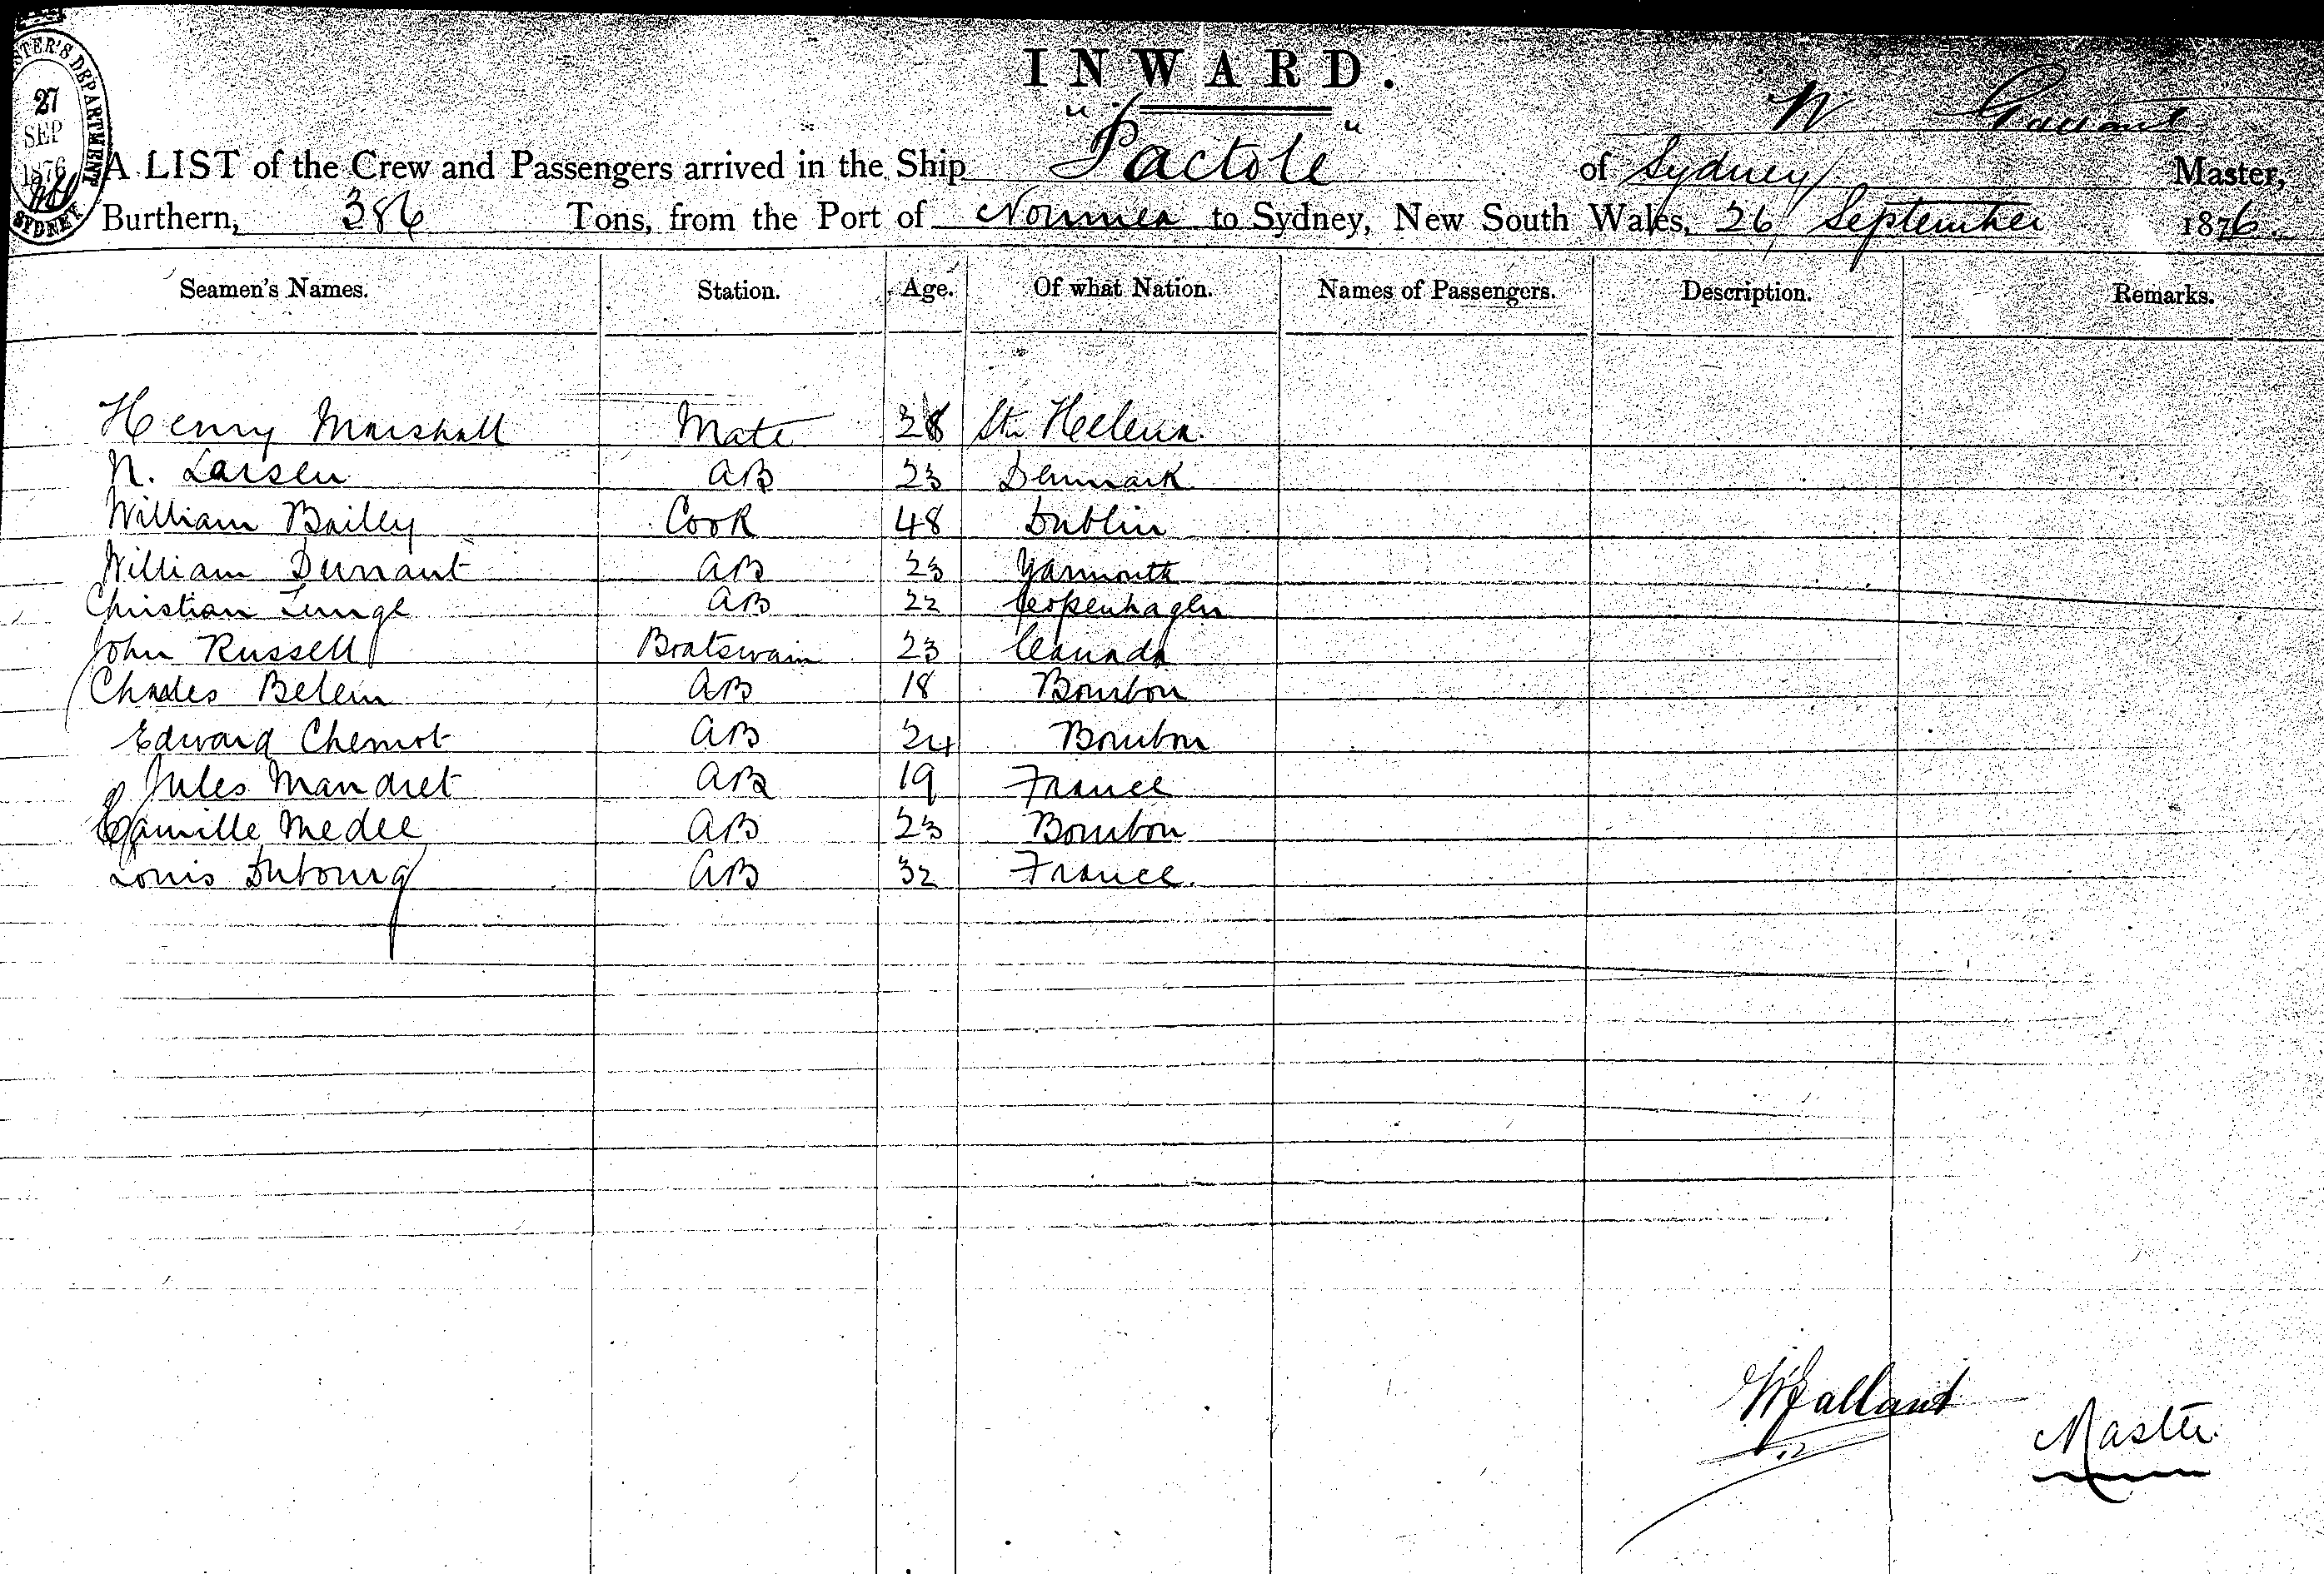 INWARD.
STER'S DEPARTMENT
27
SEP
1876
SYDNEY
W Gallant
A LIST of the Crew and Passengers arrived in the Ship "Pactole" of Sydney Master,
Burthern, 386 Tons, from the Port of Noumea to Sydney, New South Wales, 26 September 1876.
Seamen's Names. Station. Age. Of what Nation. Names of Passengers. Description. Remarks.
Henry Marshall Mate 28 St. Helena.
N. Larsen AB 23 Denmark
William Bailey Cook 48 Dublin
William Durrant AB 23 Yarmouth
Christian Lunge AB 22 Copenhagen
John Russell Boatswain 23 Canada
Charles Belem AB 18 Bourbon
Edward Chemot AB 24 Bourbon
Jules Mandret AB 19 France
Camille Medee AB 23 Bourbon
Louis Dubourg AB 32 France.
W Gallant
Master.